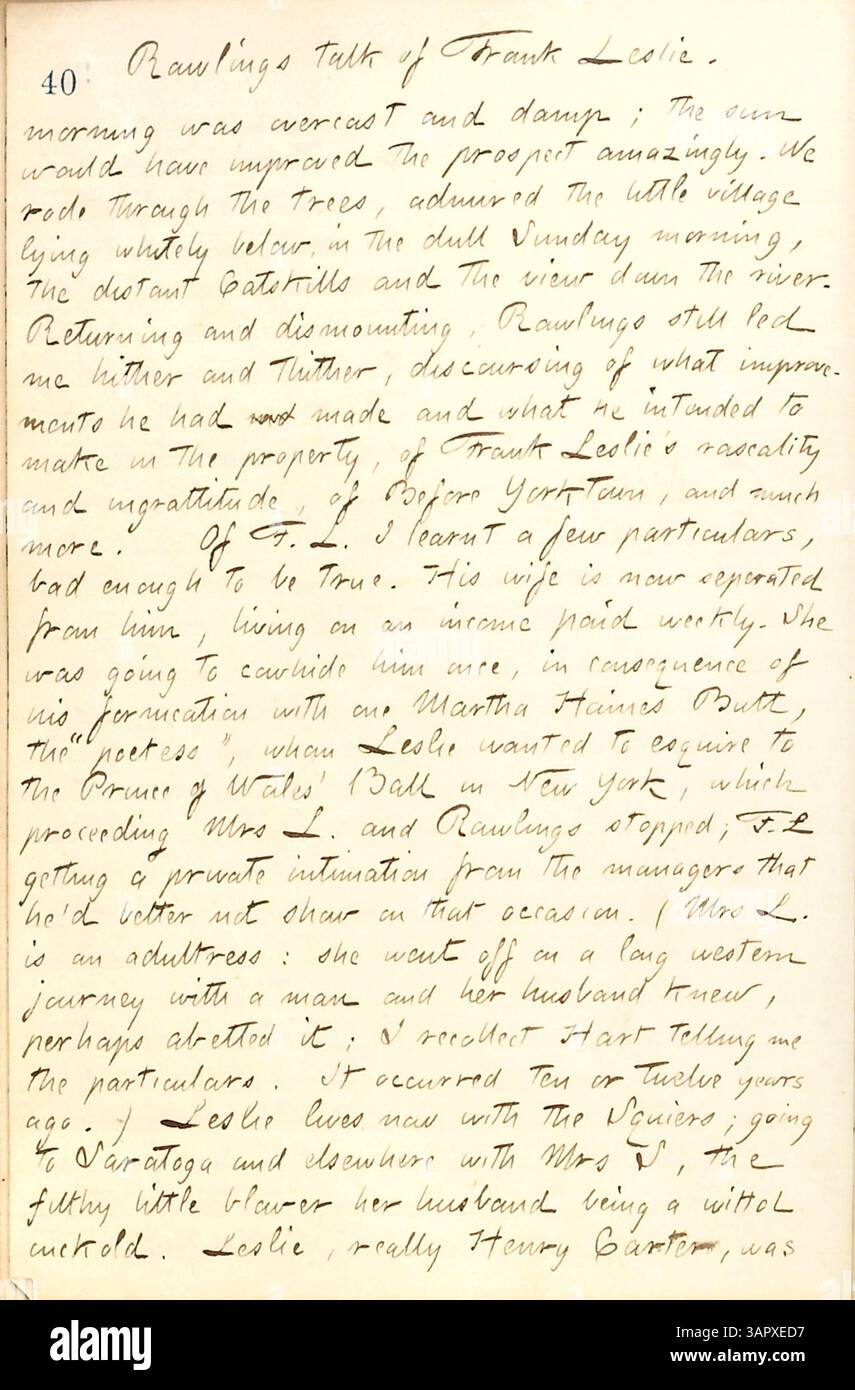 40
Rawlings talk of Frank Leslie.
morning was overcast and damp; the sun
would have improved the prospect amazingly. We
rode through the trees, admired the little village
lying whitely below, in the dull Sunday morning,
the distant Catskills and the view down the river.
Returning and dismounting, Rawlings still led
me hither and thither, discoursing of what improve-
ments he had made and what he intended to
make in the property, of Frank Leslie's rascality
and ingrattitude, of Before Yorktown, and much
more. Of F. L. I learnt a few particulars,
bad enough to be true. His wife is now seperated
from him, living on an income paid weekly. She
was going to cowhide him once, in consequence of
his fornication with one Martha Haines Butt,
the "poetess", whom Leslie wanted to esquire to
the Prince of Wales' Ball in New York, which
proceeding Mrs L. and Rawlings stopped; F. L
getting a private intimation from the managers that
he'd better not show on that occasion. (Mrs L.
is an adultress: she went off on a long western
journey with a man and her husband knew,
perhaps abetted it; I recollect Hart telling me
the particulars. It occurred ten or twelve years
ago.) Leslie lives now with the Squiers; going
to Saratoga and elsewhere with Mrs S, the
filthy little blower her husband being a wittol
cuckold. Leslie, really Henry Carter, was
alamy
Image ID: 3APXED7
www.alamy.com